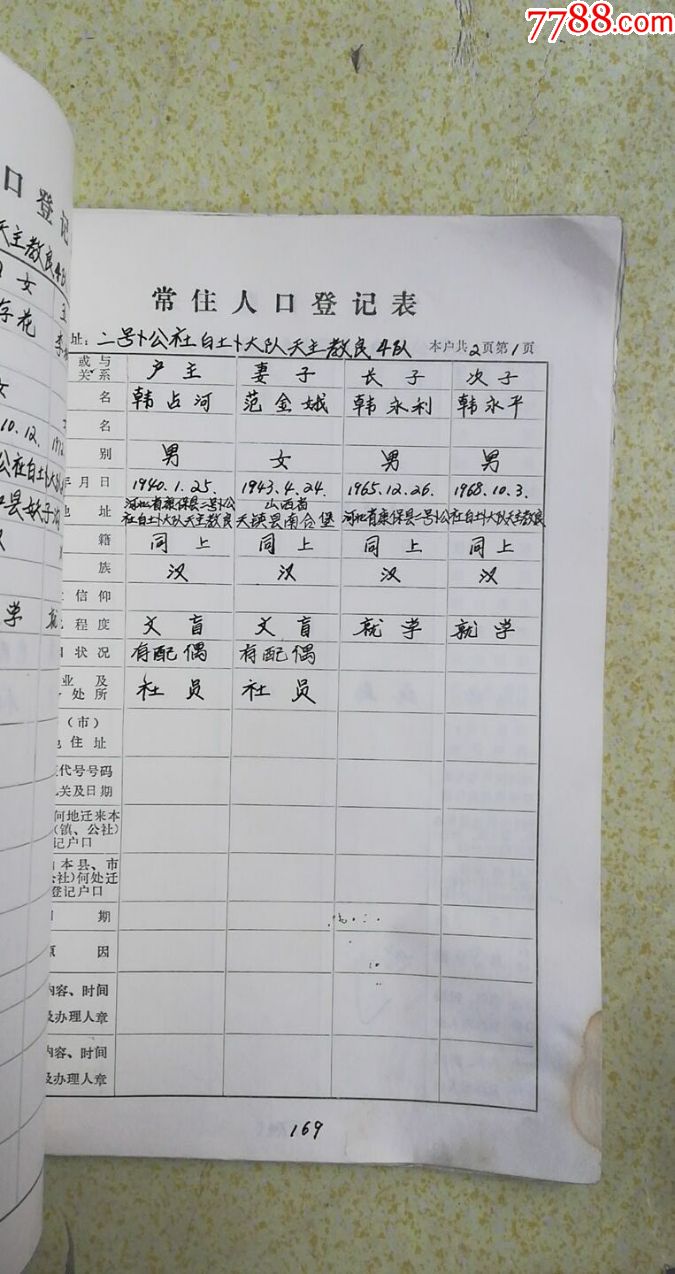 7788.com
口登记
天主教良4队
女
存花
女
10.12.
公社白土卜大队
学
常住人口登记表
址：二号卜公社白土卜大队天主教良4队 本户共2页第1页
或与关系 户主 妻子 长子 次子
名 韩占河 范金娥 韩永利 韩永平
名
别 男 女 男 男
年月日 1940.1.25. 1943.4.24. 1965.12.26. 1968.10.3.
河北省康保县二号卜公 山西省
地址 社白土卜大队天主教良 天镇县南仓堡 河北省康保县二号卜公社白土卜大队天主教良
籍 同上 同上 同上 同上
族 汉 汉 汉 汉
信仰
程度 文盲 文盲 就学 就学
状况 有配偶 有配偶
业及
处所 社员 社员
（市）
住址
代号号码
关及日期
何地迁来本
（镇、公社）
记户口
本县、市
公社）何处迁
登记户口
期
原因
内容、时间
及办理人章
内容、时间
及办理人章
169